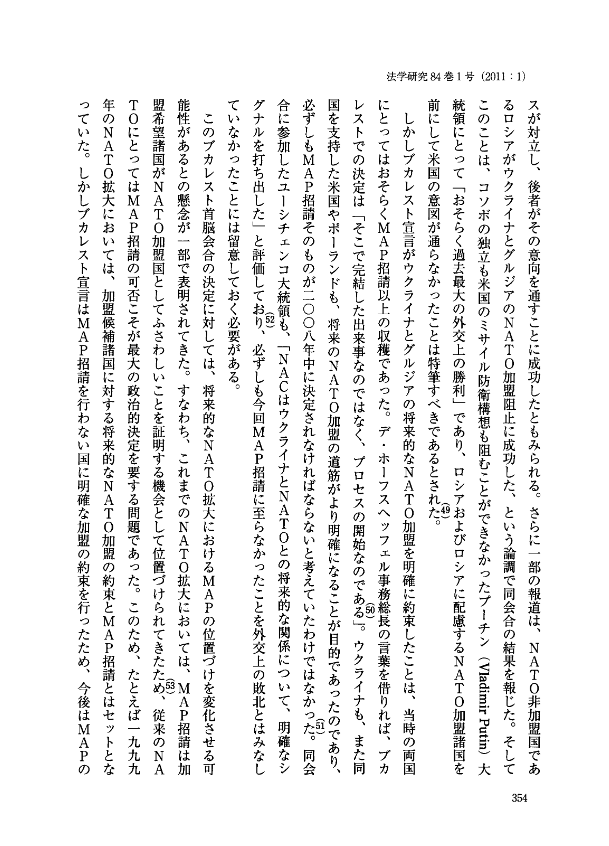 法学研究 84 巻 1 号（2011：1）
スが対立し、後者がその意向を通すことに成功したともみられる。さらに一部の報道は、ＮＡＴＯ非加盟国であ
るロシアがウクライナとグルジアのＮＡＴＯ加盟阻止に成功した、という論調で同会合の結果を報じた。そして
このことは、コソボの独立も米国のミサイル防衛構想も阻むことができなかったプーチン（Vladimir Putin）大
統領にとって「おそらく過去最大の外交上の勝利」であり、ロシアおよびロシアに配慮するＮＡＴＯ加盟諸国を
前にして米国の意図が通らなかったことは特筆すべきであるとされた。(49)
　しかしブカレスト宣言がウクライナとグルジアの将来的なＮＡＴＯ加盟を明確に約束したことは、当時の両国
にとってはおそらくＭＡＰ招請以上の収穫であった。デ・ホーフスヘッフェル事務総長の言葉を借りれば、ブカ
レストでの決定は「そこで完結した出来事なのではなく、プロセスの開始なのである」(50)。ウクライナも、また同
国を支持した米国やポーランドも、将来のＮＡＴＯ加盟の道筋がより明確になることが目的であったのであり、
必ずしもＭＡＰ招請そのものが二〇〇八年中に決定されなければならないと考えていたわけではなかった(51)。同会
合に参加したユーシチェンコ大統領も、「ＮＡＣはウクライナとＮＡＴＯとの将来的な関係について、明確なシ
グナルを打ち出した」と評価しており(52)、必ずしも今回ＭＡＰ招請に至らなかったことを外交上の敗北とはみなし
ていなかったことには留意しておく必要がある。
　このブカレスト首脳会合の決定に対しては、将来的なＮＡＴＯ拡大におけるＭＡＰの位置づけを変化させる可
能性があるとの懸念が一部で表明されてきた。すなわち、これまでのＮＡＴＯ拡大においては、ＭＡＰ招請は加
盟希望諸国がＮＡＴＯ加盟国としてふさわしいことを証明する機会として位置づけられてきたため(53)、従来のＮＡ
ＴＯにとってはＭＡＰ招請の可否こそが最大の政治的決定を要する問題であった。このため、たとえば一九九九
年のＮＡＴＯ拡大においては、加盟候補諸国に対する将来的なＮＡＴＯ加盟の約束とＭＡＰ招請とはセットとな
っていた。しかしブカレスト宣言はＭＡＰ招請を行わない国に明確な加盟の約束を行ったため、今後はＭＡＰの
354